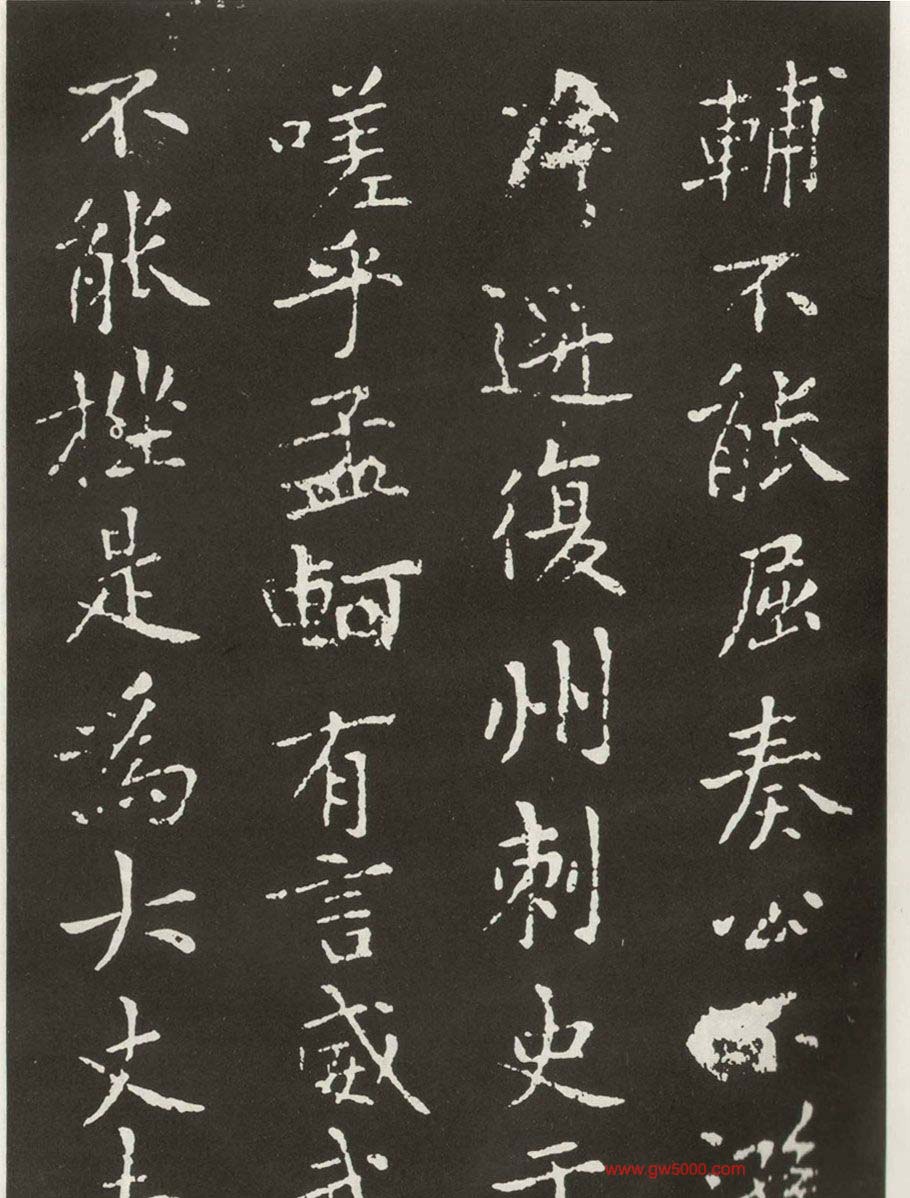 輔不能屈奏公不
復州刺史于
嗟乎孟軻有言威武
不能挫是為大丈夫
www.gw5000.com